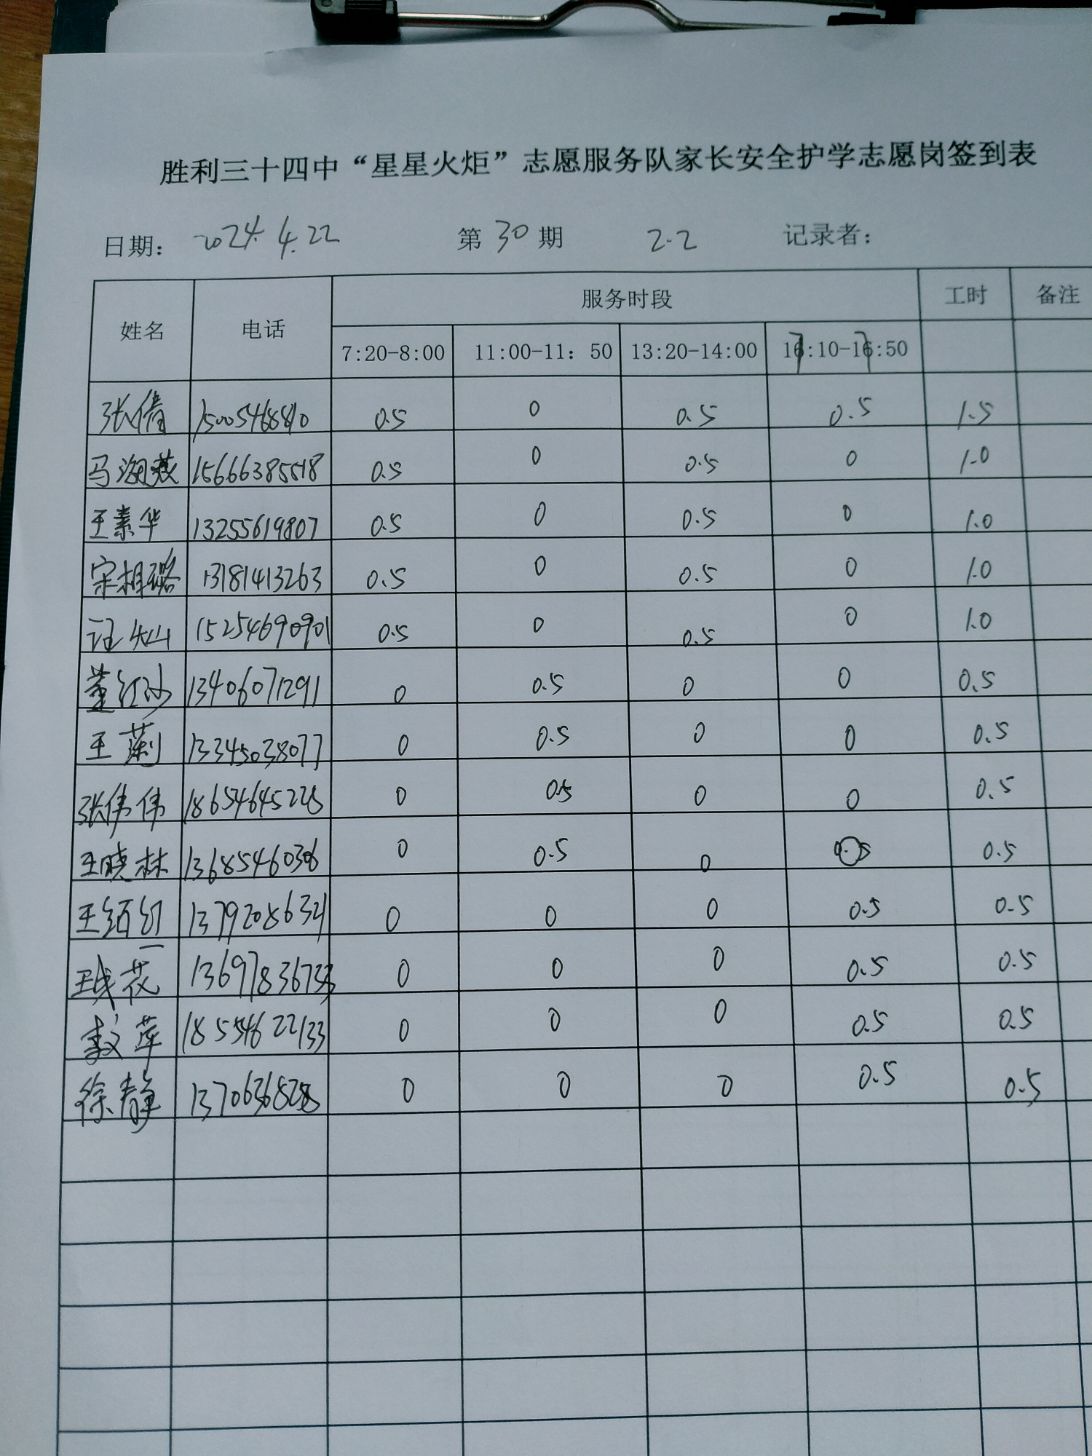 胜利三十四中“星星火炬”志愿服务队家长安全护学志愿岗签到表
日期: 2024.4.22 第30期 2.2 记录者:
姓名 电话 服务时段 工时 备注
7:20-8:00 11:00-11: 50 13:20-14:00 17:10-17:50
张倩 15005468810 0.5 0 0.5 0.5 1.5
马海燕 15666385518 0.5 0 0.5 0 1.0
王素华 13255619807 0.5 0 0.5 0 1.0
宋相璐 13181413263 0.5 0 0.5 0 1.0
15254690901 0.5 0 0.5 0 1.0
董红沙 13406071291 0 0.5 0 0 0.5
王 13345038077 0 0.5 0 0 0.5
张伟伟 18654645228 0 0.5 0 0 0.5
王晓林 13685460306 0 0.5 0 0 0.5
王 红 13792086321 0 0 0 0.5 0.5
花 13697836733 0 0 0 0.5 0.5
萍 18554622133 0 0 0 0.5 0.5
徐静 0 0 0 0.5 0.5